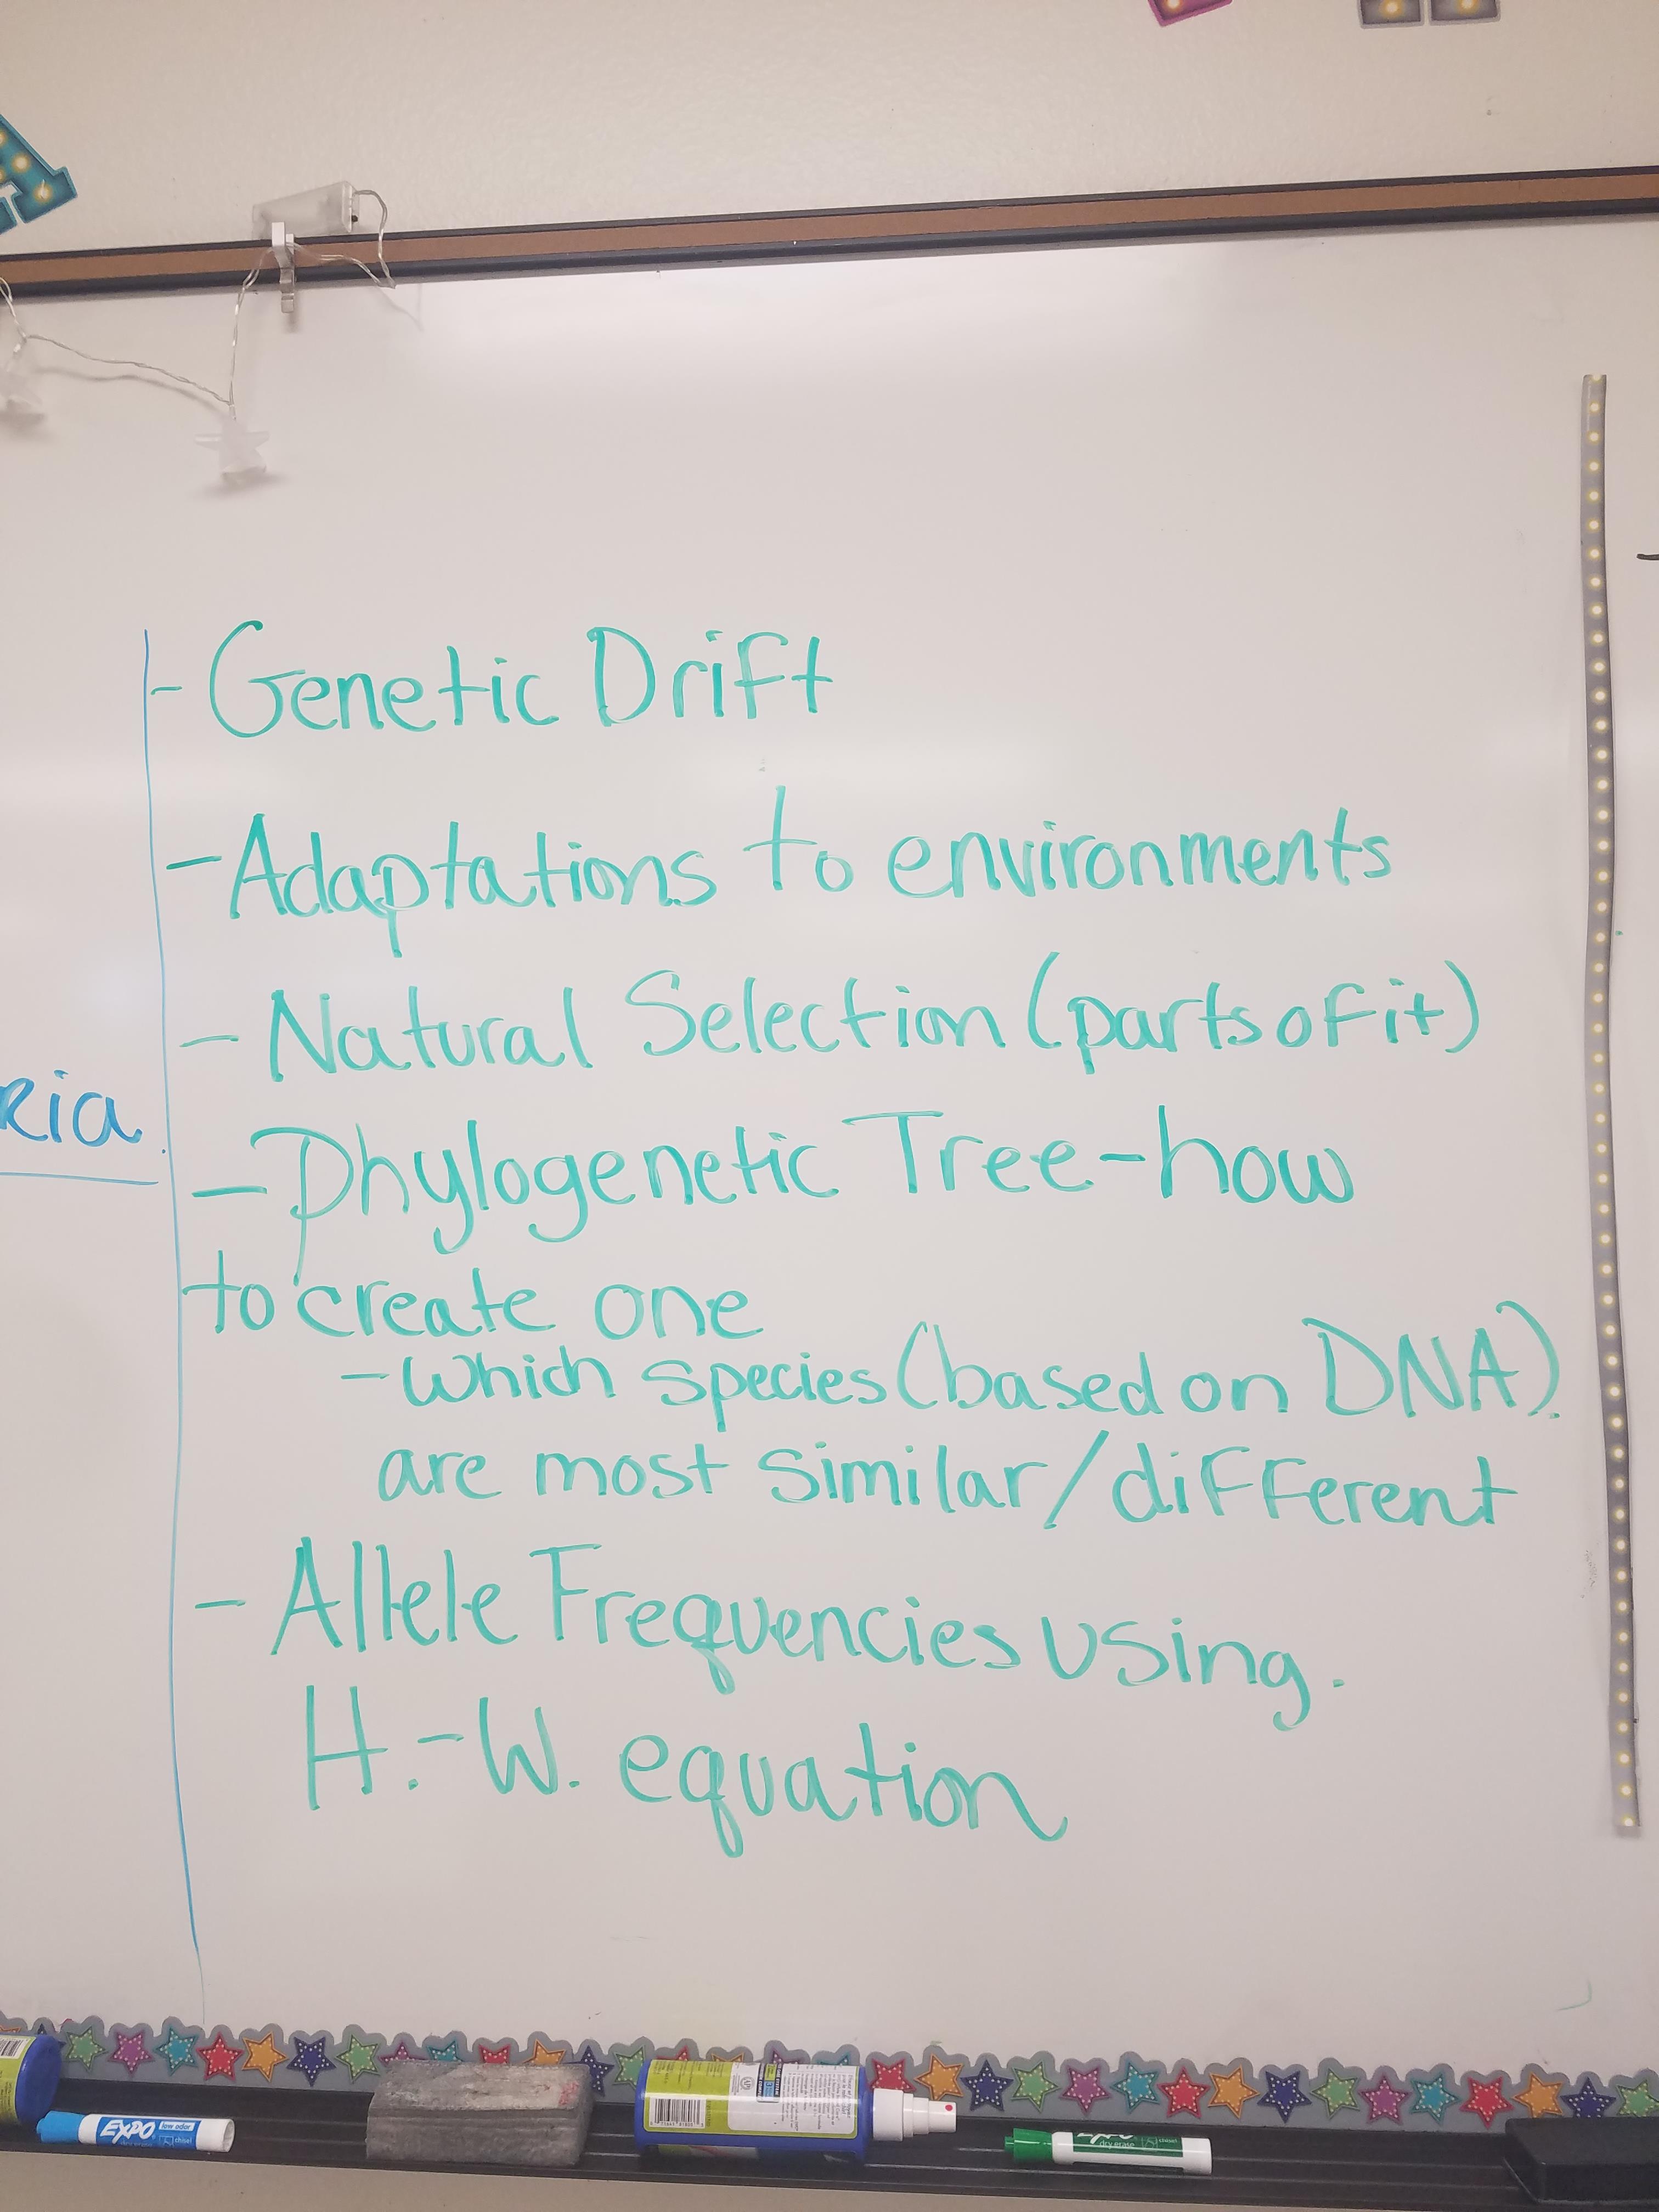 - Genetic Drift
- Adaptations to environments
- Natural Selection (parts of it)
- Phylogenetic Tree - how
to create one
- Which species (based on DNA)
are most similar/different
- Allele Frequencies using.
H.-W. equation
ria.
EXPO low odor
dry erase chisel
EXPO
dry erase chisel